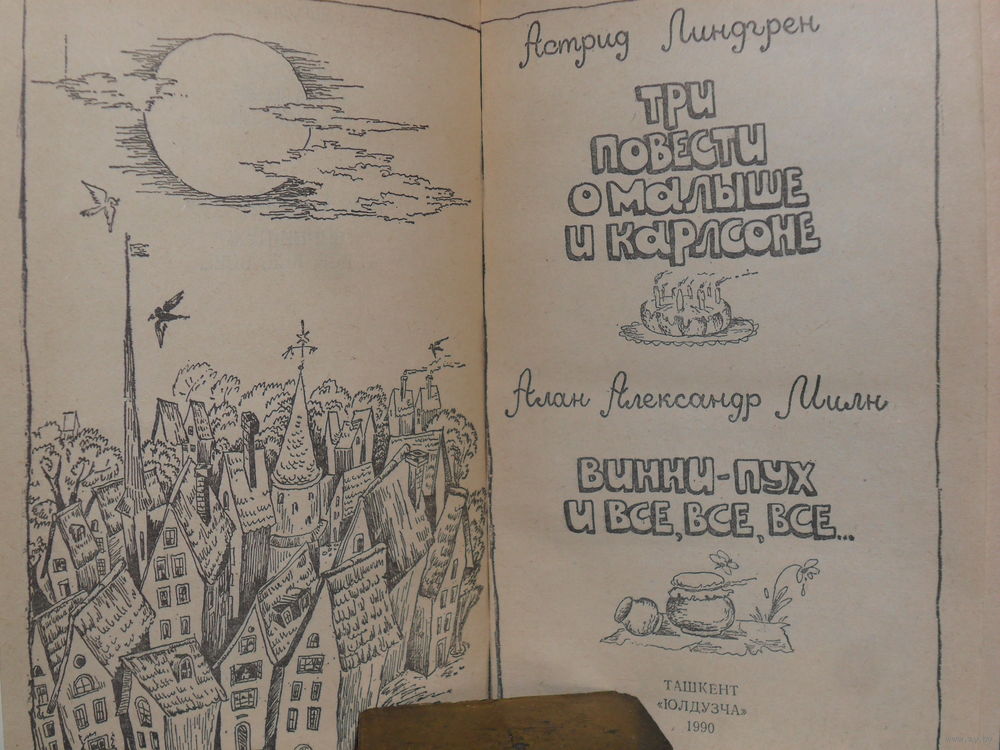 Астрид Линдгрен
ТРИ
ПОВЕСТИ
О МАЛЫШЕ
И КАРЛСОНЕ
Алан Александр Милн
ВИННИ-ПУХ
И ВСЕ, ВСЕ, ВСЕ...
ТАШКЕНТ
«ЮЛДУЗЧА»
1990